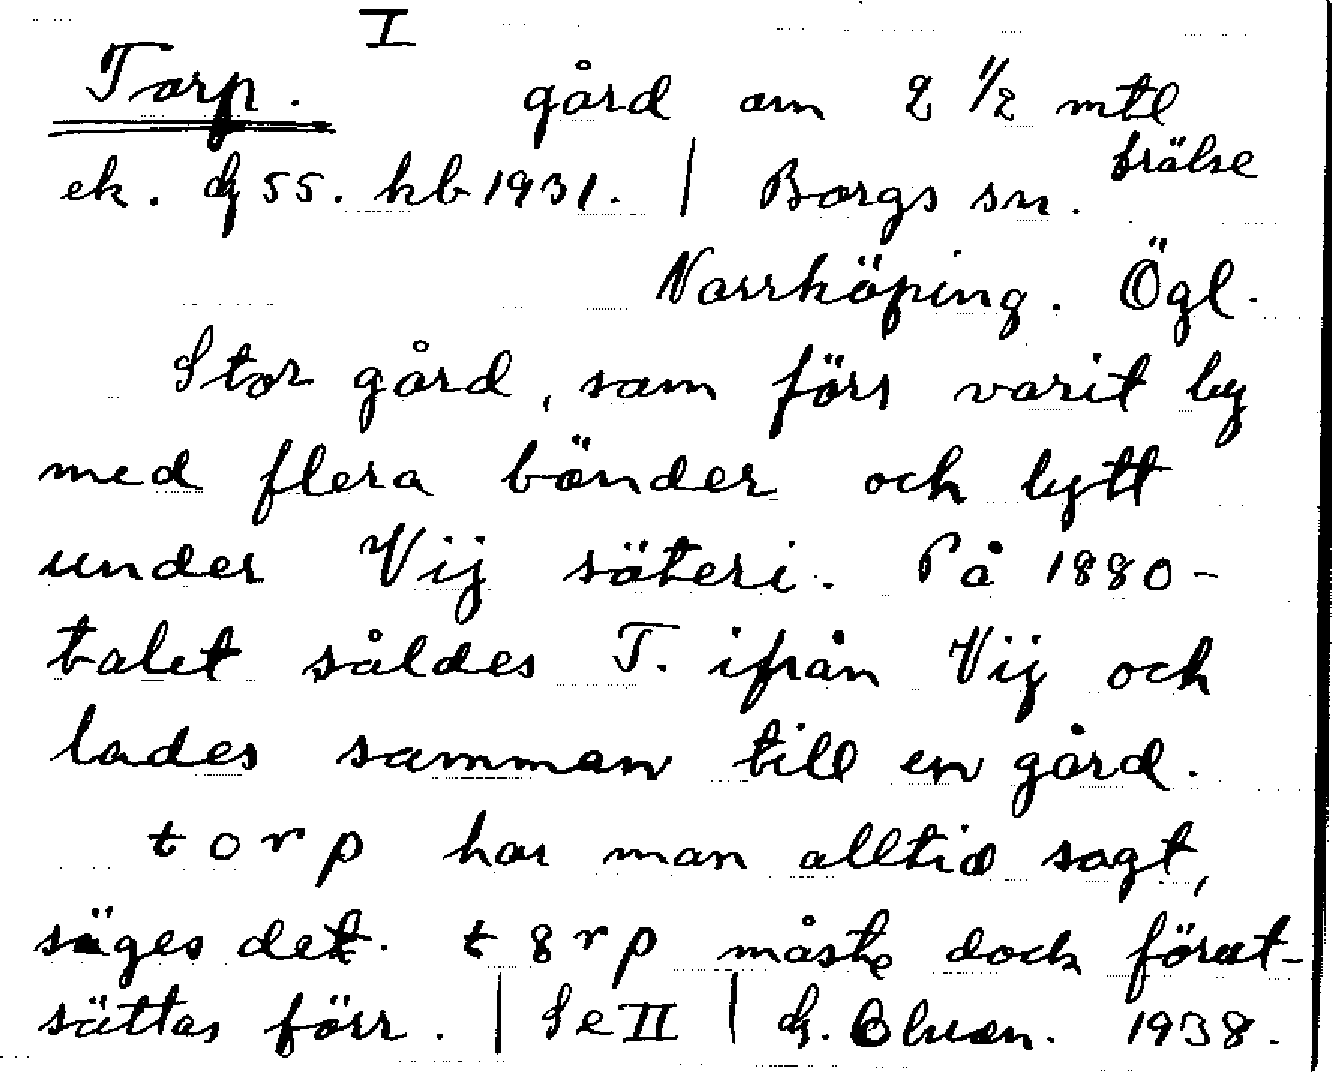 I
Torp. gård om 2 1/2 mtl
frälse
ek. bl 55. kb 1931. | Borgs sn.
Norrköping. Ögl.
Stor gård, som förs varit by
med flera bönder och lytt
under Vij säteri. På 1880-
talet såldes T. ifrån Vij och
lades samman till en gård.
torp har man alltid sagt,
säges det. t8rp måste dock förut-
sättas förr. | Se II | 1938.